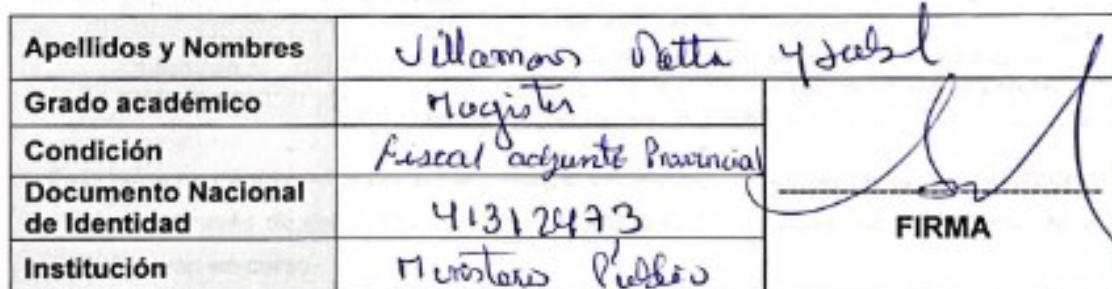 Apellidos y Nombres Villamars Netta Ysabel
Grado académico Magister
Condición Fiscal adjunto Provincial
Documento Nacional de Identidad 41312473
FIRMA
Institución Ministerio Público